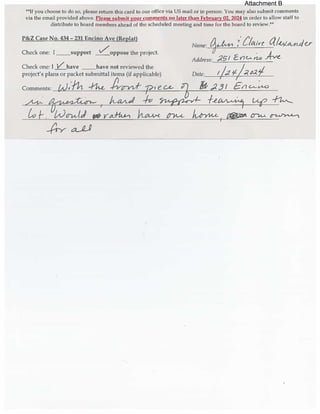 Attachment B
**If you choose to do so, please return this card to our office via US mail or in person. You may also submit comments
via the email provided above. Please submit your comments no later than February 02, 2024 in order to allow staff to
distribute to board members ahead of the scheduled meeting and time for the board to review.**
P&Z Case No. 434 – 231 Encino Ave (Replat)
Name: John & Claire Alexander
Check one: I ___support ✓ oppose the project.
Address: 251 Encino Ave
Check one: I ✓ have ___have not reviewed the
project's plans or packet submittal items (if applicable)
Date: 1/24/2024
Comments: With the front piece of 231 Encino
in question, hard to support tearing up the
lot. Would rather have one home, one owner
for all